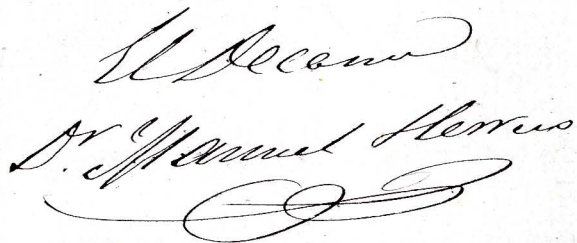 El Decano
Dr. Manuel Herrera